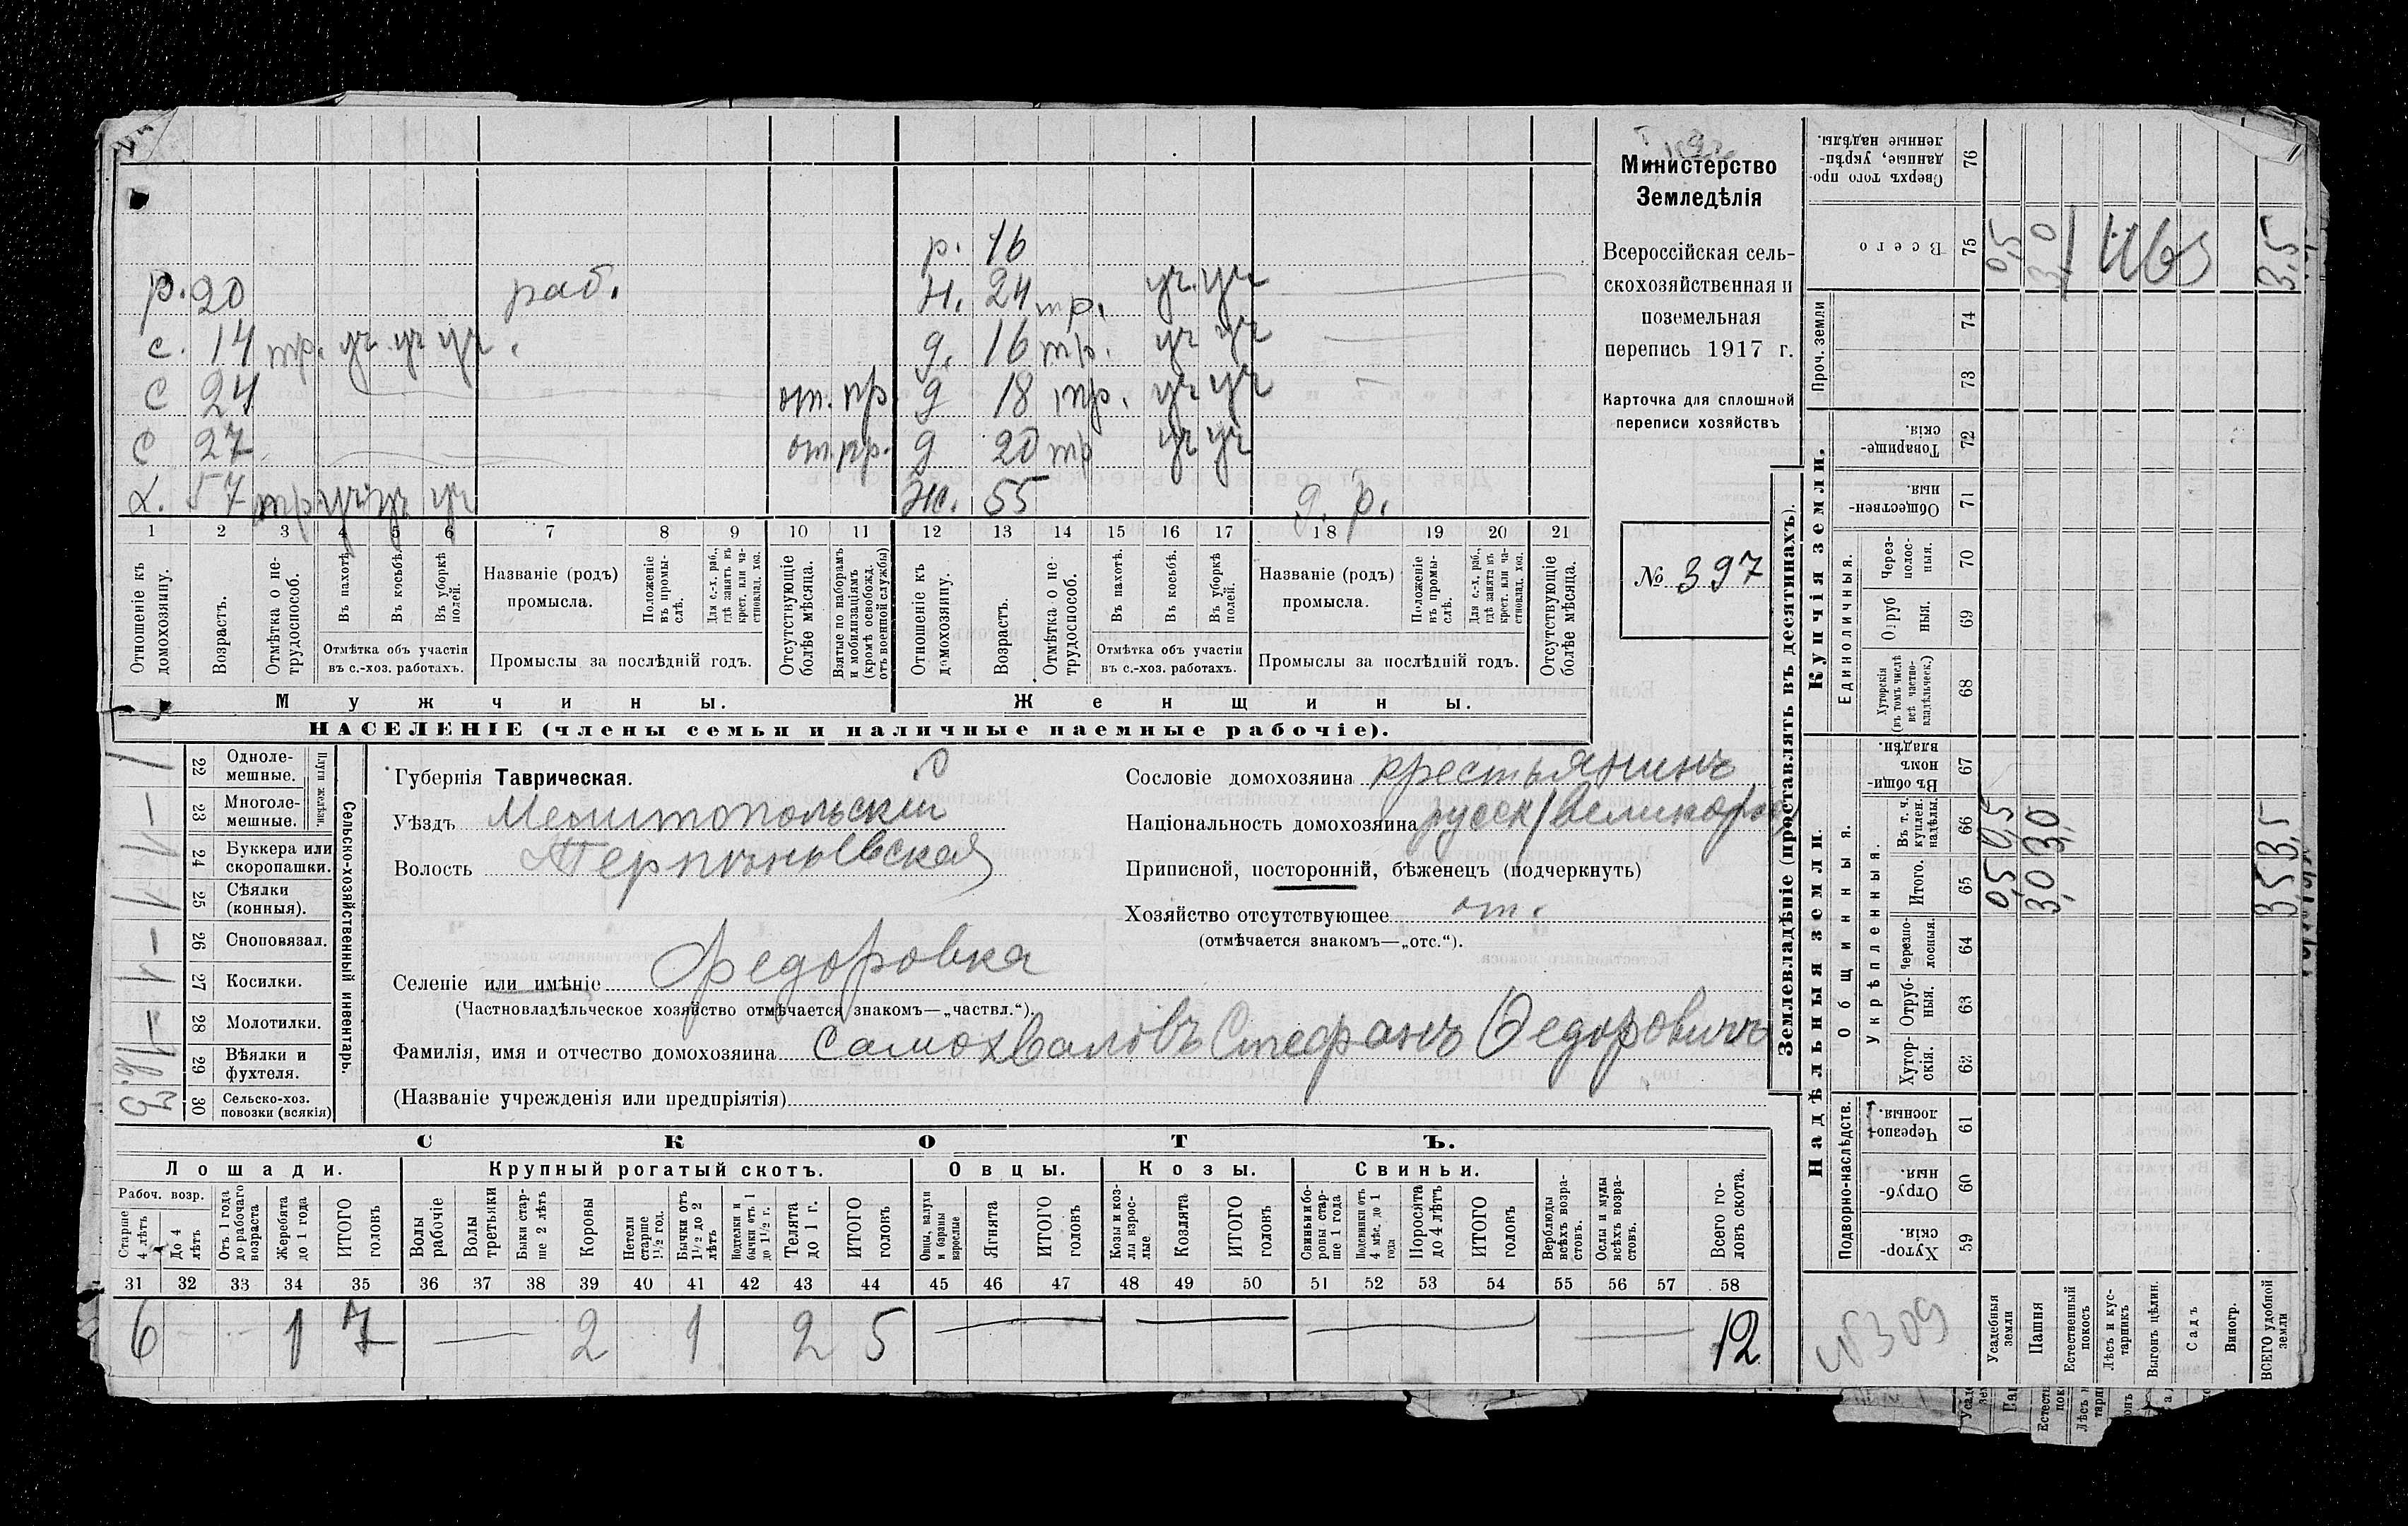 р. 16
р. 20 раб. Н. 24 тр. уч. уч
с. 14 тр. уч уч уч. д. 16 тр. уч уч
с 24 от. пр. д 18 тр. уч уч
с 27 от. пр. д 20 тр уч уч
х. 57 тр уч уч уч ж. 55 д. р.
1 2 3 4 5 6 7 8 9 10 11 12 13 14 15 16 17 18 19 20 21
Отношеніе къ домохозяину.
Возрастъ.
Отмѣтка о нетрудоспособ.
Въ пахотѣ.
Въ косьбѣ.
Въ уборкѣ полей.
Отмѣтка объ участіи въ с.-хоз. работахъ.
Названіе (родъ) промысла.
Положеніе въ промыслѣ.
Для с.-х. раб., гдѣ занятъ въ крест. или частновлад. хоз.
Промыслы за послѣдній годъ.
Отсутствующіе болѣе мѣсяца.
Взятые по наборамъ и мобилизаціямъ (кромѣ освобожд. отъ военной службы)
Отношеніе къ домохозяину.
Возрастъ.
Отмѣтка о нетрудоспособ.
Въ пахотѣ.
Въ косьбѣ.
Въ уборкѣ полей.
Отмѣтка объ участіи въ с.-хоз. работахъ.
Названіе (родъ) промысла.
Положеніе въ промыслѣ.
Для с.-х. раб., гдѣ занята въ крест. или частновлад. хоз.
Промыслы за послѣдній годъ.
Отсутствующіе болѣе мѣсяца.
Мужчины. Женщины.
НАСЕЛЕНІЕ (члены семьи и наличные наемные рабочіе).
Министерство
Земледѣлія
Всероссійская сель-
скохозяйственная и
поземельная
перепись 1917 г.
Карточка для сплошной
переписи хозяйствъ
№ 397
Сельско-хозяйственный инвентарь.
Плуги желѣзн.
22 Одноле-
мешные. 1
23 Многоле-
мешные. —
24 Буккера или
скоропашки. 1
25 Сѣялки
(конныя). 1
26 Сноповязал. —
27 Косилки. 1
28 Молотилки. —
29 Вѣялки и
фухтеля. 1
30 Сельско-хоз.
повозки (всякія)
Губернія Таврическая.
Уѣздъ Мелитопольскій
Волость Терпѣньевская
Селеніе или имѣніе Федоровка
(Частновладѣльческое хозяйство отмѣчается знакомъ—„частвл.“).
Фамилія, имя и отчество домохозяина Самохваловъ Стефанъ Федоровичъ
(Названіе учрежденія или предпріятія)
Сословіе домохозяина крестьянинъ
Національность домохозяина русск/великорос/
Приписной, посторонній, бѣженецъ (подчеркнуть)
Хозяйство отсутствующее от.
(отмѣчается знакомъ—„отс.“).
СКОТЪ.
Лошади. Крупный рогатый скотъ. Овцы. Козы. Свиньи.
Рабоч. возр.
Старше 4 лѣтъ
До 4 лѣтъ
Отъ 1 года до рабочаго возраста
Жеребята до 1 года
ИТОГО головъ
Волы рабочіе
Волы третьяки
Быки старше 2 лѣтъ
Коровы
Нетели старше 1½ год.
Бычки отъ 1½ до 2 лѣтъ
Подтелки и бычки отъ 1 до 1½ г.
Телята до 1 г.
ИТОГО головъ
Овцы, валухи и бараны взрослые
Ягнята
ИТОГО головъ
Козы и козлы взрослые
Козлята
ИТОГО головъ
Свиньи и боровы старше 1 года
Подсвинки отъ 4 мѣс. до 1 года
Поросята до 4 лѣтъ
ИТОГО головъ
Верблюды всѣхъ возрастовъ.
Ослы и мулы всѣхъ возрастовъ.
Всего головъ скота.
31 32 33 34 35 36 37 38 39 40 41 42 43 44 45 46 47 48 49 50 51 52 53 54 55 56 57 58
6 — — 1 7 — 2 1 2 5 — — — — 12
Землевладѣніе (проставлять въ десятинахъ).
Купчія земли.
Надѣльныя земли.
Сверхъ того проданные, укрѣпленные надѣлы. 76
Всего 75 0,5 3,0 3,5
Проч. земли 74 73
Товарищескія. 72
Общественныя. 71
Единоличныя.
Черезполосныя. 70
Отрубныя. 69
Хуторскія (въ томъ числѣ всѣ частновладѣльческ.) 68
Общинныя.
Въ общинномъ владѣн. 67
Укрѣпленныя.
Въ т. ч. куплен. надѣлы. 66 0,5 3,0 3,5
Итого. 65 0,5 3,0 3,5
Черезполосныя. 64
Отрубныя. 63
Хуторскія. 62
Подворно-наслѣдств.
Черезполосныя. 61
Отрубныя. 60
Хуторскія. 59
№309
Усадебныя земли
Пашня
Естественный покосъ
Лѣсъ и кустарникъ
Выгонъ цѣлин.
Садъ
Виногр.
ВСЕГО удобной земли